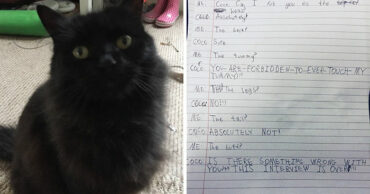 ME Can I pet you on the head?
COCO Absolutely!
ME The back?
COCO Sure
ME The tummy?
COCO YOU-ARE-FORBIDDEN-TO-EVER-TOUCH-MY
TUMMY!!
ME The legs?
COCO NO!!
ME The tail?
COCO ABSOLUTELY NOT!
ME The
COCO IS THERE SOMETHING WRONG WITH
YOU?! THIS INTERVIEW IS OVER!!